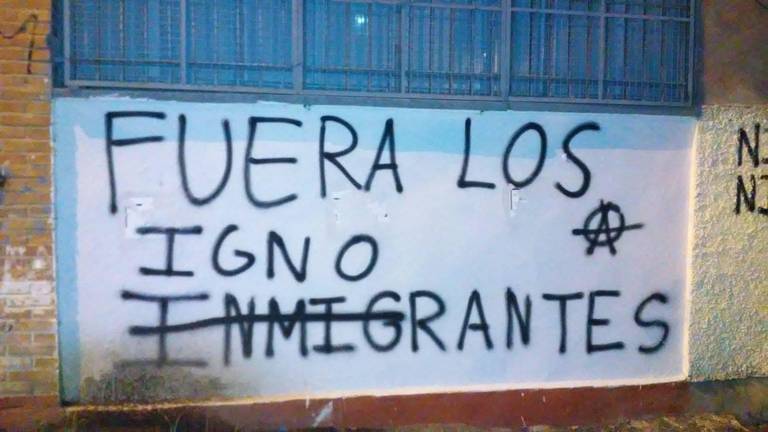 FUERA LOS
IGNO
INMIGRANTES
NI
NI